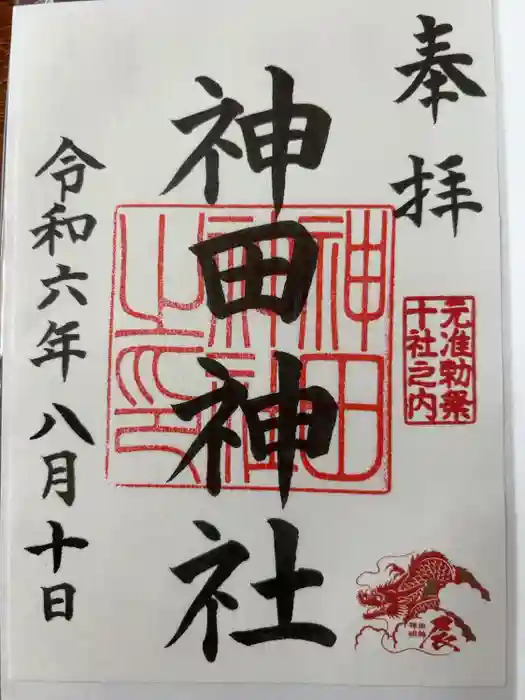 奉拝
元准勅祭
十社之内
神田神社
神田神社之印
辰
令和六年八月十日